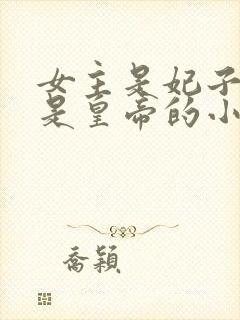 女主是妃子
是皇帝的小
喬穎